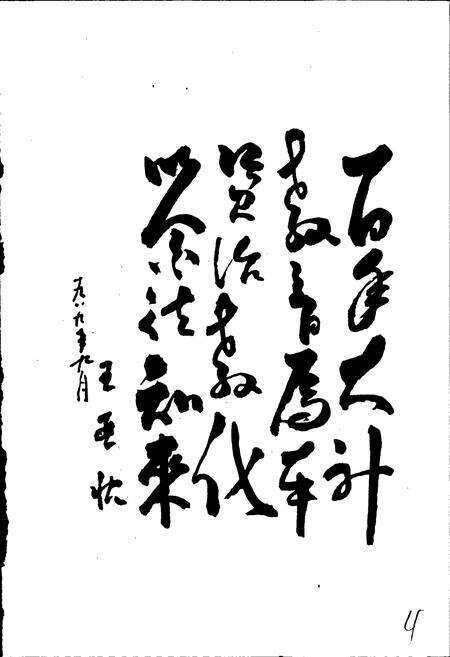 百年大计
教育为本
资治教代
以念往知来
王
一九八九年九月
4